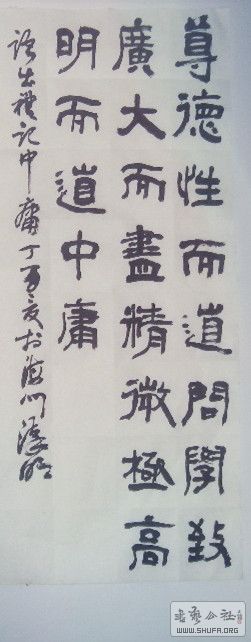 尊德性而道問學致
廣大而盡精微極高
明而道中庸
語出禮記中庸丁酉夏於海州漢明
書藝公社
WWW.SHUFA.ORG